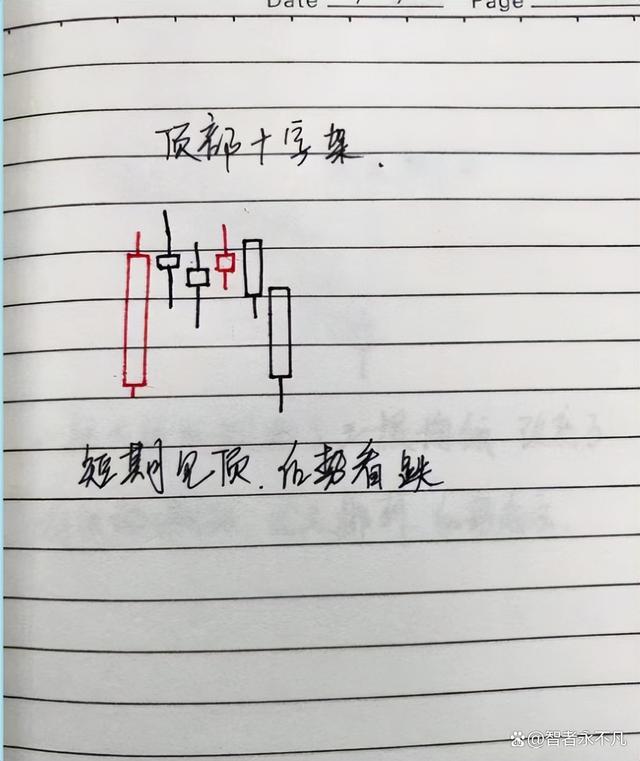 Date / / Page
顶部十字架.
短期见顶.后势看跌
@智者永不凡